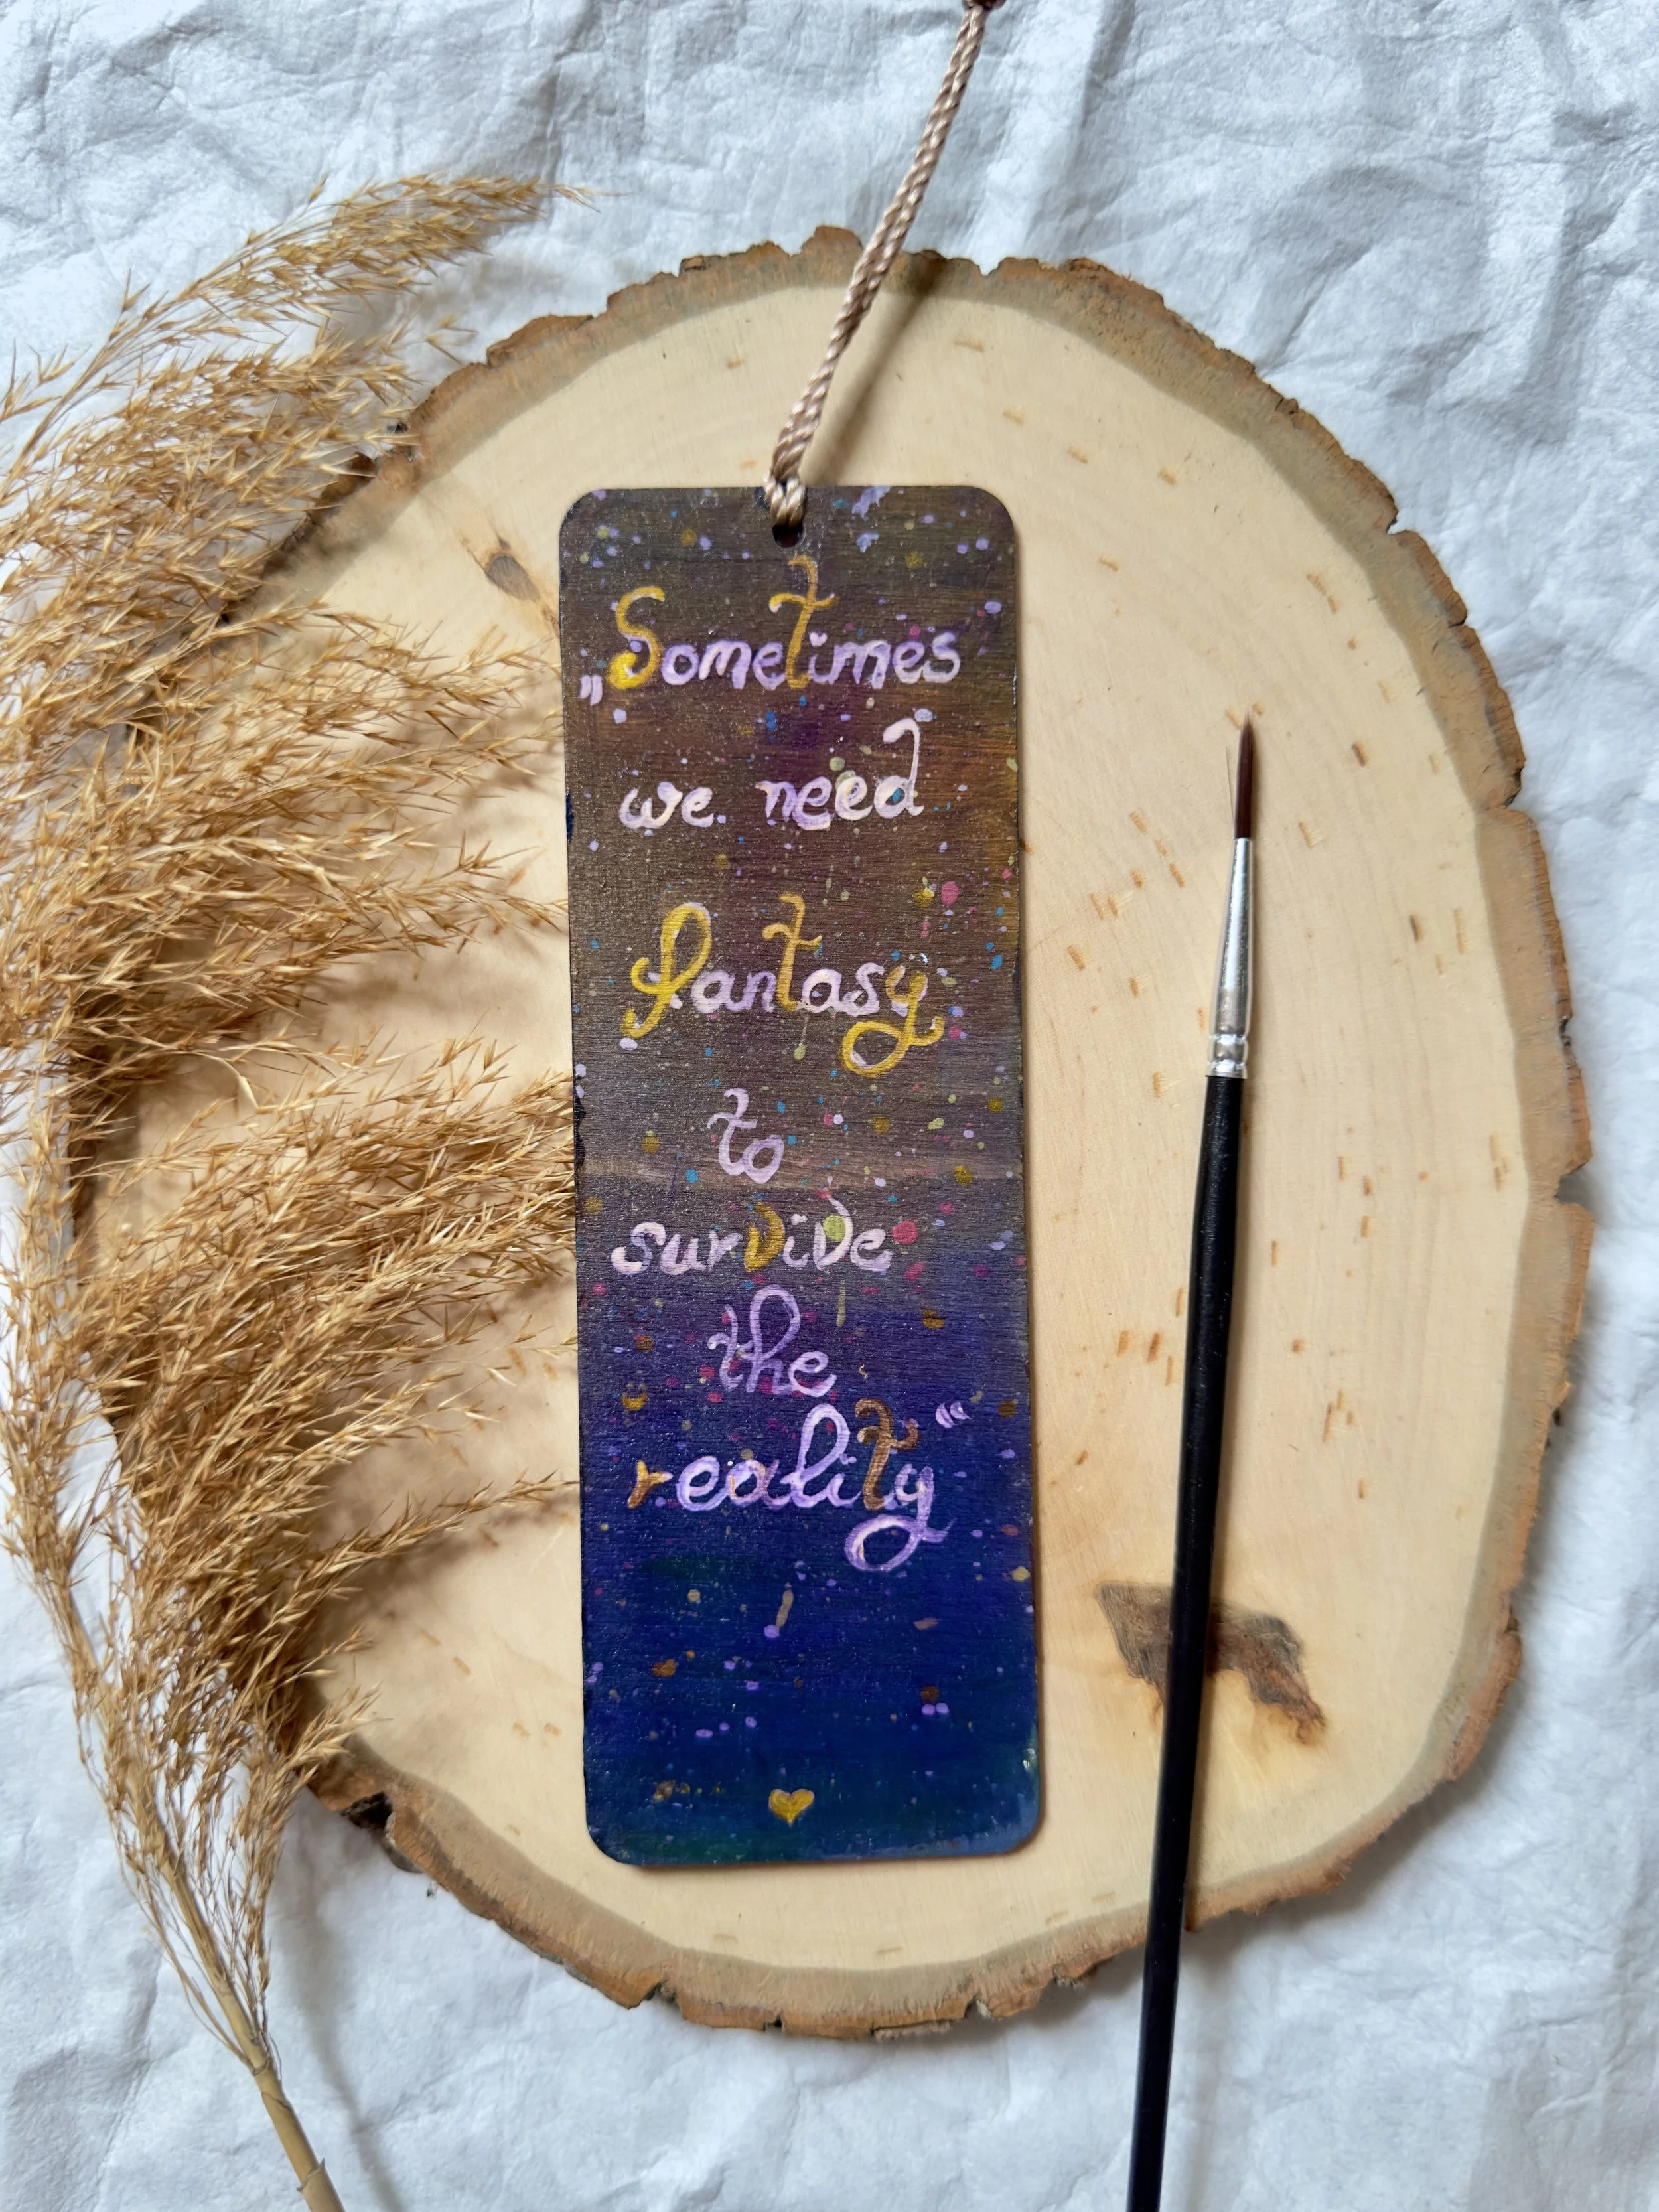 „Sometimes
we need
fantasy
to
survive
the
reality“